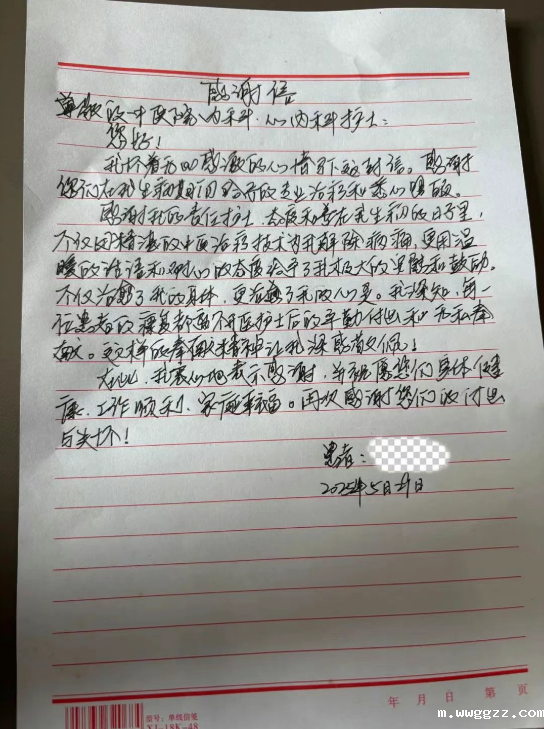 感谢信
尊敬的中医院内科、心内科护士：
您好！
我怀着无比感激的心情写下这封信。感谢
您们在我生病期间给予的专业治疗和悉心照顾。
感谢我的责任护士 在我生病的日子里，
不仅用精湛的中医治疗技术为我解除病痛，更用温
暖的话语和耐心的态度给予了我极大的安慰和鼓励。
不仅治愈了我的身体，更治愈了我的心灵。我深知，每一
位患者的康复都离不开医护士后的辛勤付出和无私奉
献。这样的奉献精神让我深感敬佩！
在此，我衷心地表示感谢，并祝愿您们身体健
康、工作顺利、家庭幸福。再次感谢您们的付出
与关怀！
患者：
2025年5月29日
年 月 日 第 页
型号：单线信笺
XJ-18K-48
m.wwggzz.com